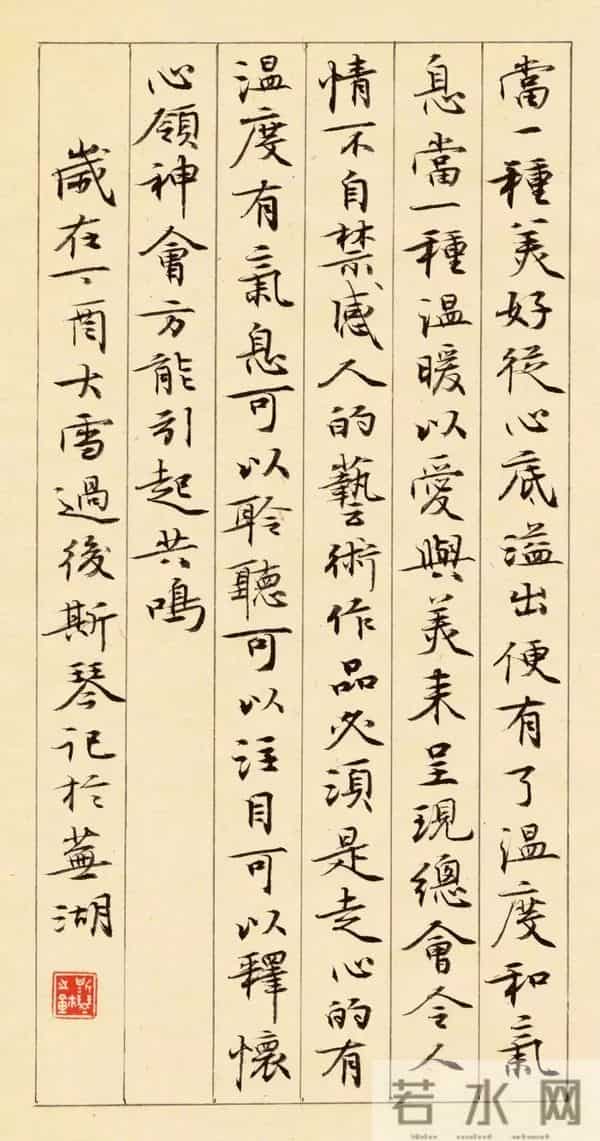 當一種美好從心底溢出便有了溫度和氣
息當一種溫暖以愛與美来呈現總會令人
情不自禁感人的藝術作品必須是走心的有
溫度有氣息可以聆聽可以注目可以釋懷
心領神會方能引起共鳴
歲在丁酉大雪過後斯琴記於蕪湖
若水网